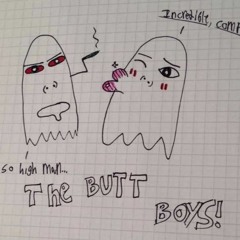 Incredible,
so high man...
The BUTT
BOYS!